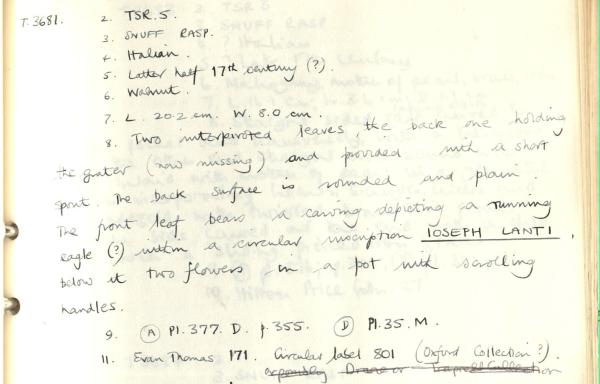 T.3681. 2. TSR.5.
3. SNUFF RASP.
4. Italian.
5. Latter half 17th century (?).
6. Walnut.
7. L. 20.2 cm. W. 8.0 cm.
8. Two interpivoted leaves, the back one holding
the grater (now missing) and provided with a short
spout. The back surface is rounded and plain.
The front leaf bears a carving depicting a running
eagle (?) within a circular inscription IOSEPH LANTI,
below it two flowers in a pot with scrolling
handles.
9. (A) Pl.377. D. p.355. (D) Pl.35. M.
11. Evan Thomas 171. Circular label 801 (Oxford Collection?).
possibly Drane or Trapnell Collection